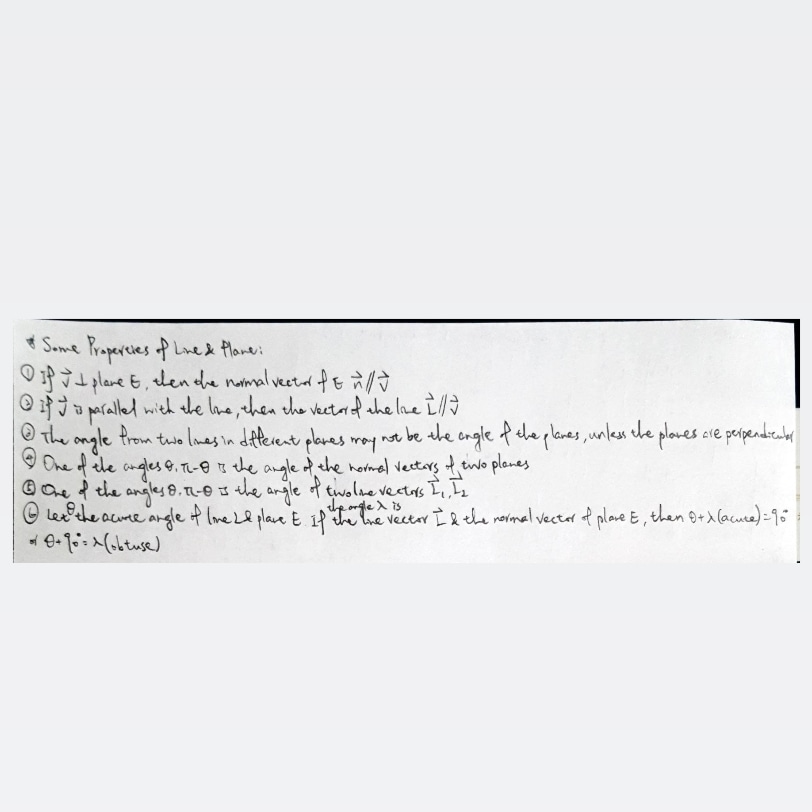 * Some Properties of Line & Plane:
① If v⃗ ⊥ plane E, then the normal vector of E n⃗ // v⃗
② If v⃗ is paralled with the line, then the vector of the line L⃗ // v⃗
③ The angle from two lines in different planes may not be the angle of the planes, unless the planes are perpendicular
④ One of the angles θ, π-θ is the angle of the normal vectors of two planes
⑤ One of the angles θ, π-θ is the angle of two line vectors L⃗₁, L⃗₂
⑥ Let θ the acute angle of line L & plane E. If the angle λ is the line vector L⃗ & the normal vector of plane E, then θ+λ(acute)=90°
or θ+90°=λ(obtuse)